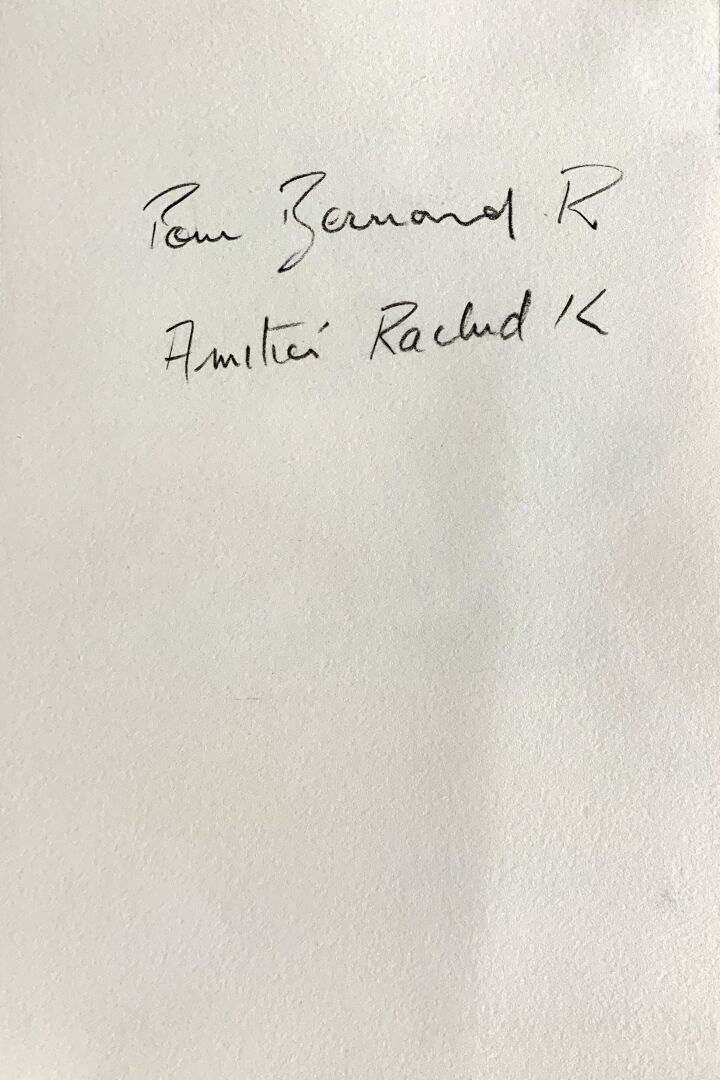 Pour Bernard R
Amitié Rachid K